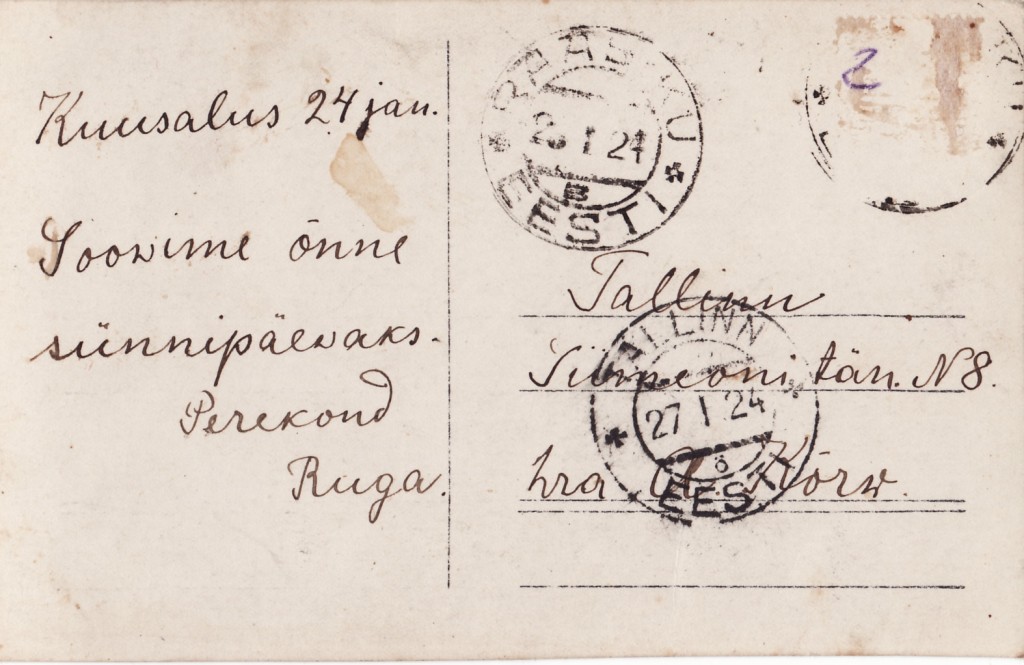 Kuusalus 24 jan.
Soowime õnne
sünnipäewaks.
Perekond
Ruga.
PEASKU
I 24
B
EESTI
2
Tallinn
Siimeoni tän. N 8.
hra A. Kõrw.
TALLINN
27 I 24
ö
EESTI